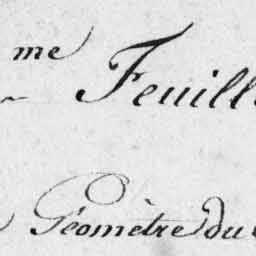 me Feuill
Géomètre du